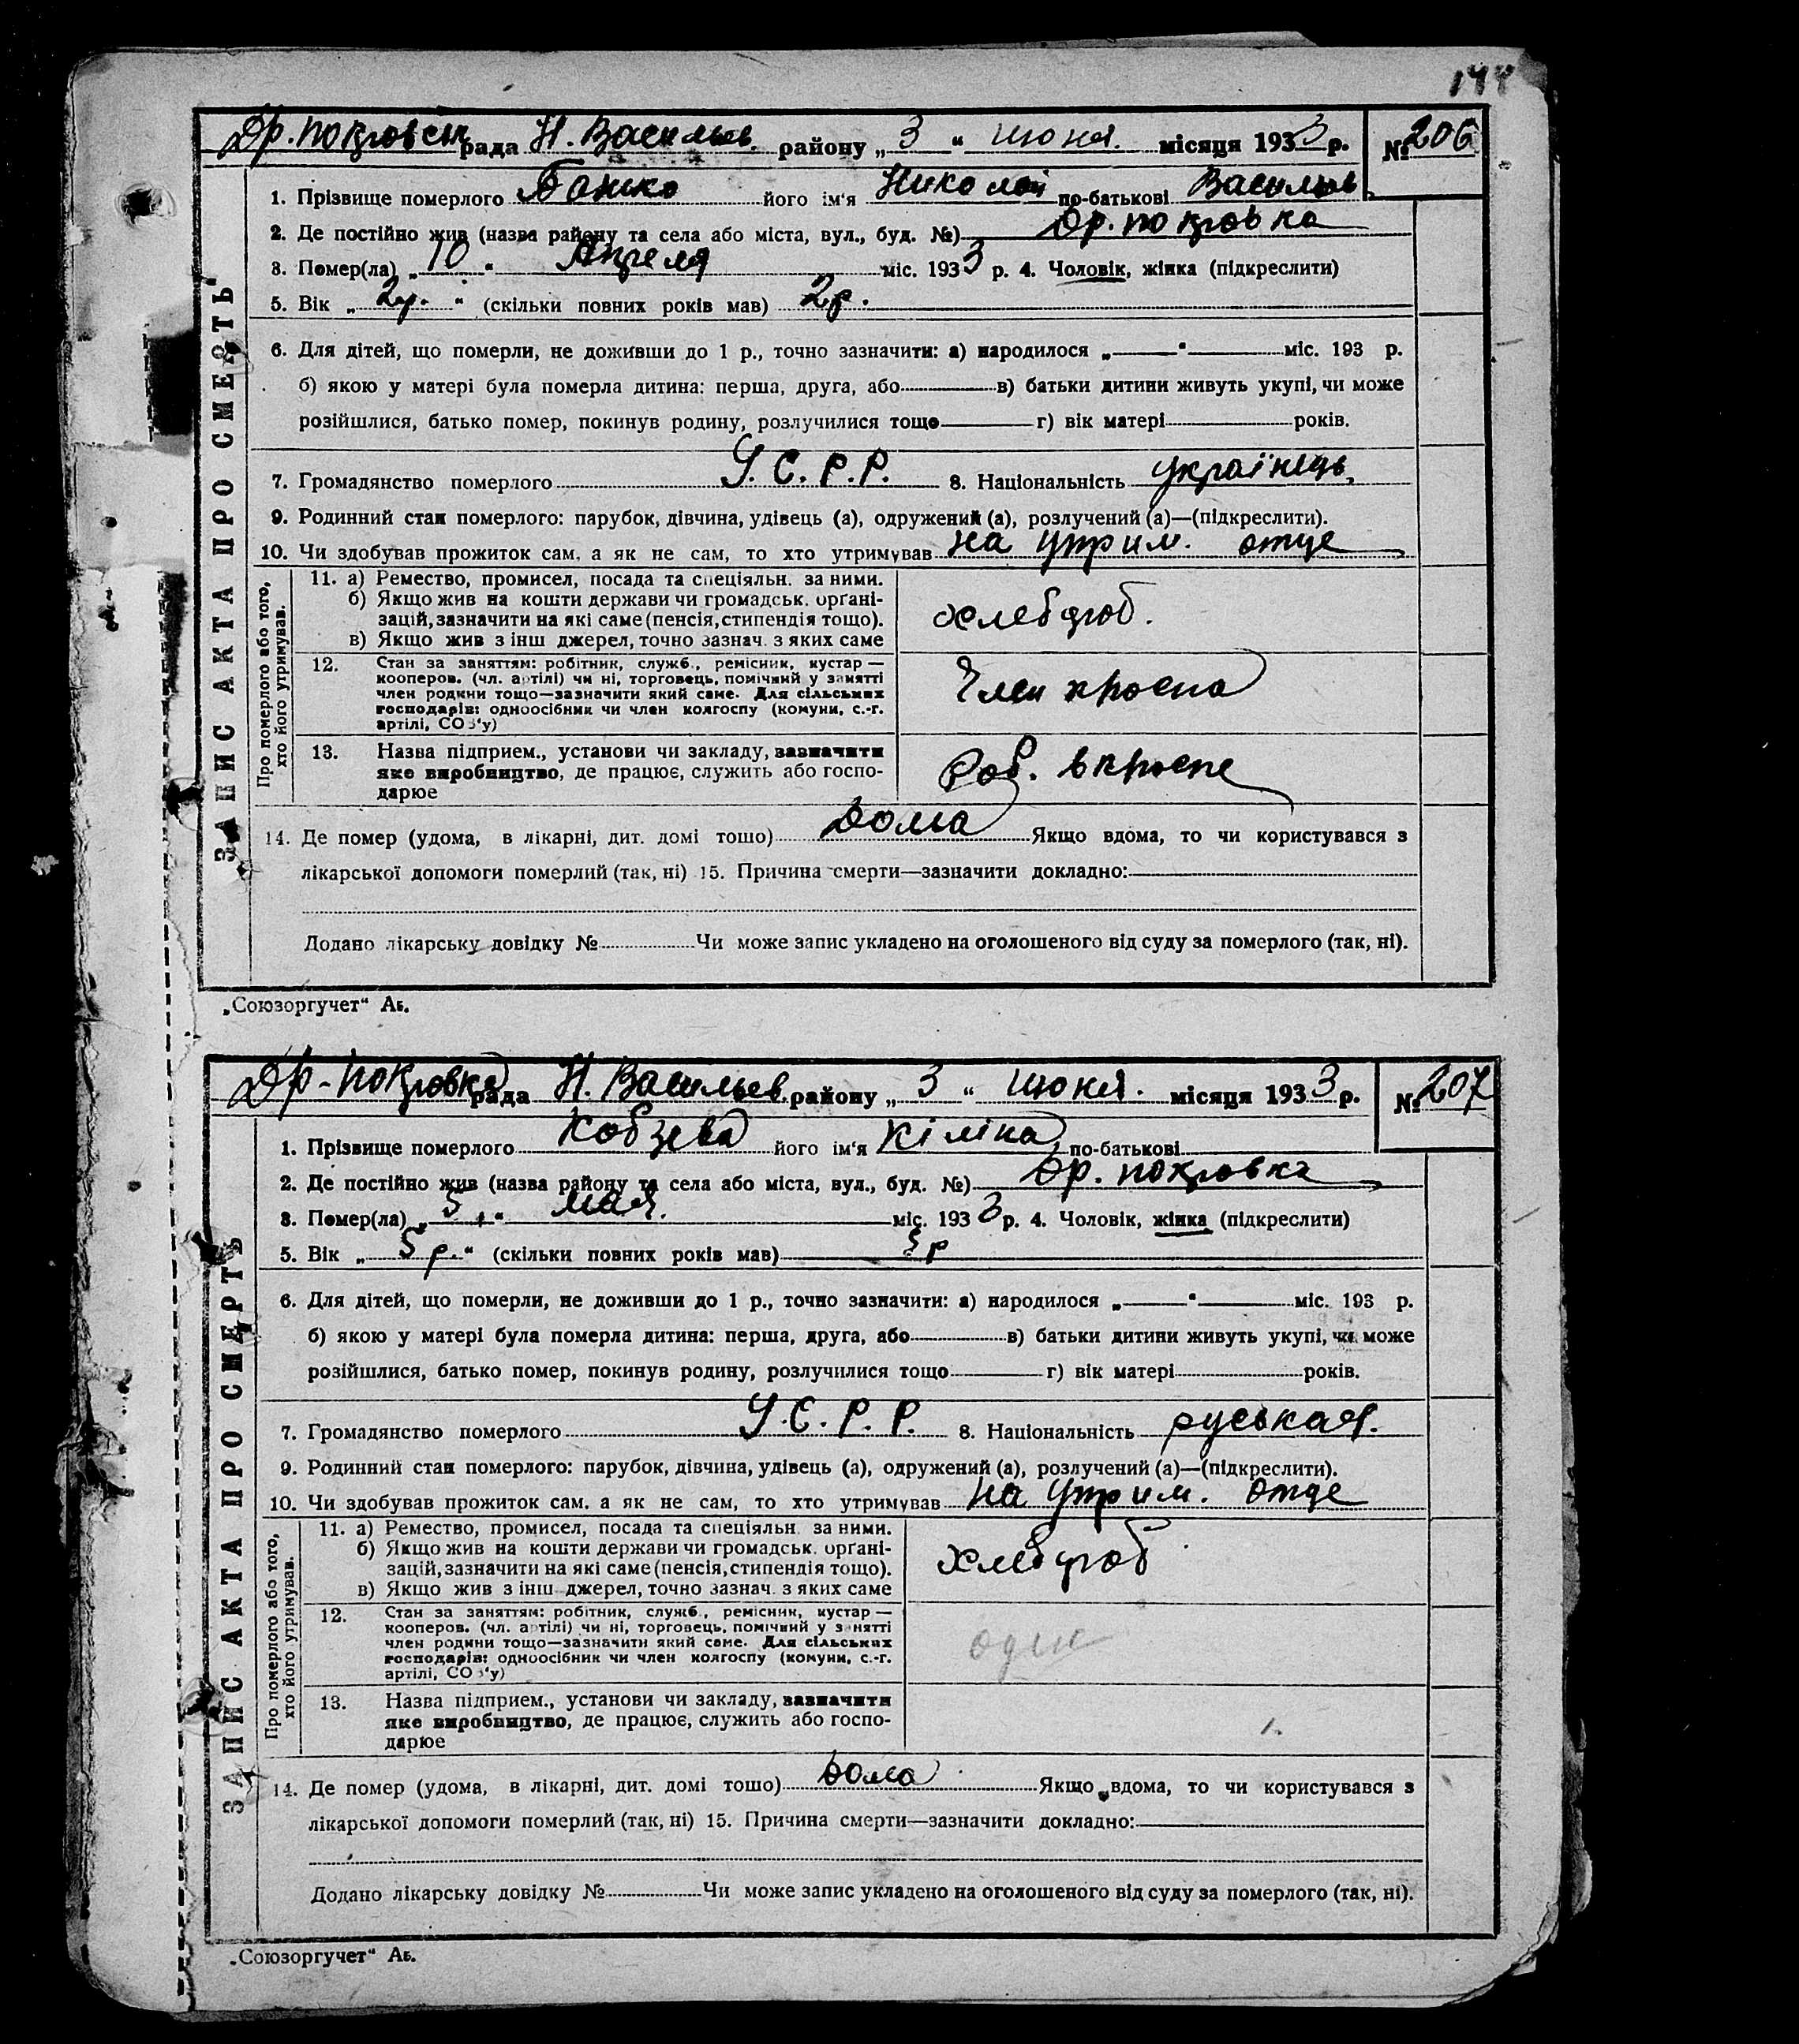 Др. покровськ рада Н. Васильев. району „ 3 “ июня. місяця 1933 р. № 206
1. Прізвище померлого Божко його ім'я Николай по-батькові Васильев.
2. Де постійно жив (назва району та села або міста, вул., буд. №) Др. покровка
3. Помер(ла) „ 10 “ Апреля міс. 1933 р. 4. Чоловік, жінка (підкреслити)
5. Вік „ 2р. “ (скільки повних років мав) 2р.
6. Для дітей, що померли, не доживши до 1 р., точно зазначити: а) народилося „ — “ — міс. 193 р.
б) якою у матері була померла дитина: перша, друга, або в) батьки дитини живуть укупі, чи може
розійшлися, батько помер, покинув родину, розлучилися тощо г) вік матері років.
7. Громадянство померлого У.С.Р.Р. 8. Національність українець
9. Родинний стан померлого: парубок, дівчина, удівець (а), одружений (а), розлучений (а)—(підкреслити).
10. Чи здобував прожиток сам, а як не сам, то хто утримував на утрим. отце
ЗАПИС АКТА ПРО СМЕРТЬ
Про померлого або того,
хто його утримував.
11. а) Ремество, промисел, посада та спеціяльн. за ними.
б) Якщо жив на кошти держави чи громадськ. орґані-
зацій, зазначити на які саме (пенсія, стипендія тощо).
в) Якщо жив з інш джерел, точно зазнач. з яких саме
хлебороб.
12. Стан за заняттям: робітник, служб., ремісник, кустар —
кооперов. (чл. артілі) чи ні, торговець, помічний у занятті
член родини тощо—зазначити який саме. Для сільських
господарів: одноосібник чи член колгоспу (комуни, с.-г.
артілі, СОЗ'у)
Член
13. Назва підприєм., установи чи закладу, зазначити
яке виробництво, де працює, служить або госпо-
дарює
Роб. в
14. Де помер (удома, в лікарні, дит. домі тошо) Дома Якщо вдома, то чи користувався з
лікарської допомоги померлий (так, ні) 15. Причина смерти—зазначити докладно:
Додано лікарську довідку № Чи може запис укладено на оголошеного від суду за померлого (так, ні).
„Союзоргучет“ Аь.
Др-покровка рада Н. Васильев. району „ 3 “ июня. місяця 1933 р. № 207
1. Прізвище померлого Кобзева його ім'я Кіліна по-батькові
2. Де постійно жив (назва району та села або міста, вул., буд. №) Др. покровка
3. Помер(ла) „ 5 “ мая. міс. 1933 р. 4. Чоловік, жінка (підкреслити)
5. Вік „ 5 р. “ (скільки повних років мав) 5р
6. Для дітей, що померли, не доживши до 1 р., точно зазначити: а) народилося „ — “ — міс. 193 р.
б) якою у матері була померла дитина: перша, друга, або в) батьки дитини живуть укупі, чи може
розійшлися, батько помер, покинув родину, розлучилися тощо г) вік матері років.
7. Громадянство померлого У.С.Р.Р. 8. Національність руськая.
9. Родинний стан померлого: парубок, дівчина, удівець (а), одружений (а), розлучений (а)—(підкреслити).
10. Чи здобував прожиток сам, а як не сам, то хто утримував на утрим. отце
ЗАПИС АКТА ПРО СМЕРТЬ
Про померлого або того,
хто його утримував.
11. а) Ремество, промисел, посада та спеціяльн. за ними.
б) Якщо жив на кошти держави чи громадськ. орґані-
зацій, зазначити на які саме (пенсія, стипендія тощо).
в) Якщо жив з інш джерел, точно зазнач. з яких саме
хлебороб
12. Стан за заняттям: робітник, служб., ремісник, кустар —
кооперов. (чл. артілі) чи ні, торговець, помічний у занятті
член родини тощо—зазначити який саме. Для сільських
господарів: одноосібник чи член колгоспу (комуни, с.-г.
артілі, СОЗ'у)
13. Назва підприєм., установи чи закладу, зазначити
яке виробництво, де працює, служить або госпо-
дарює
14. Де помер (удома, в лікарні, дит. домі тошо) Дома Якщо вдома, то чи користувався з
лікарської допомоги померлий (так, ні) 15. Причина смерти—зазначити докладно:
Додано лікарську довідку № Чи може запис укладено на оголошеного від суду за померлого (так, ні).
„Союзоргучет“ Аь.